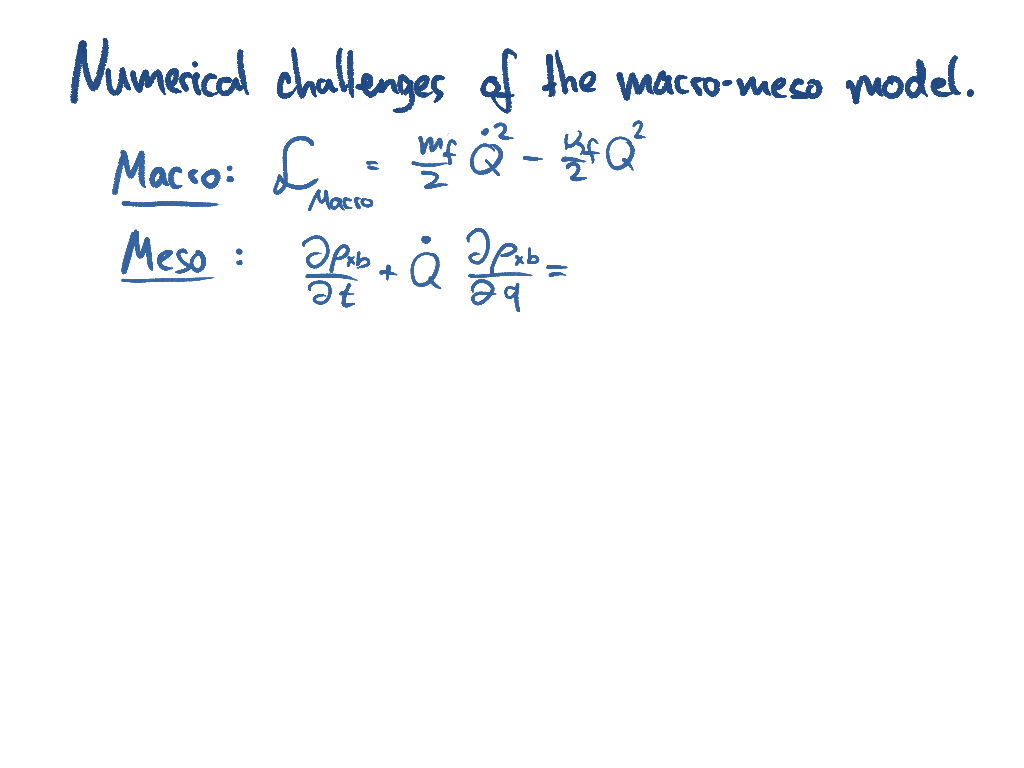 Numerical challenges of the macro-meso model.
Macro: ℒ_Macro = m_f/2 Q̇² - K_f/2 Q²
Meso: ∂ρ_xb/∂t + Q̇ ∂ρ_xb/∂q =